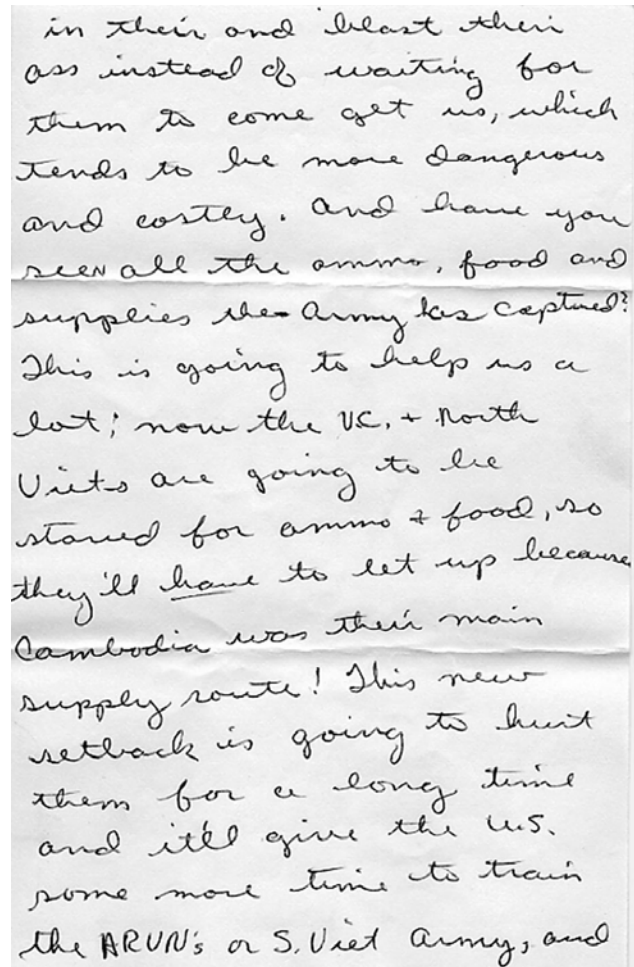 in their and blast their
ass instead of waiting for
them to come get us, which
tends to be more dangerous
and costly. And have you
seen all the ammo, food and
supplies the Army has captured?
This is going to help us a
lot; now the V.C. + North
Viets are going to be
starved for ammo + food, so
they'll have to let up because
Cambodia was their main
supply route! This new
setback is going to hurt
them for a long time
and it'll give the U.S.
some more time to train
the ARVN's or S. Viet Army, and